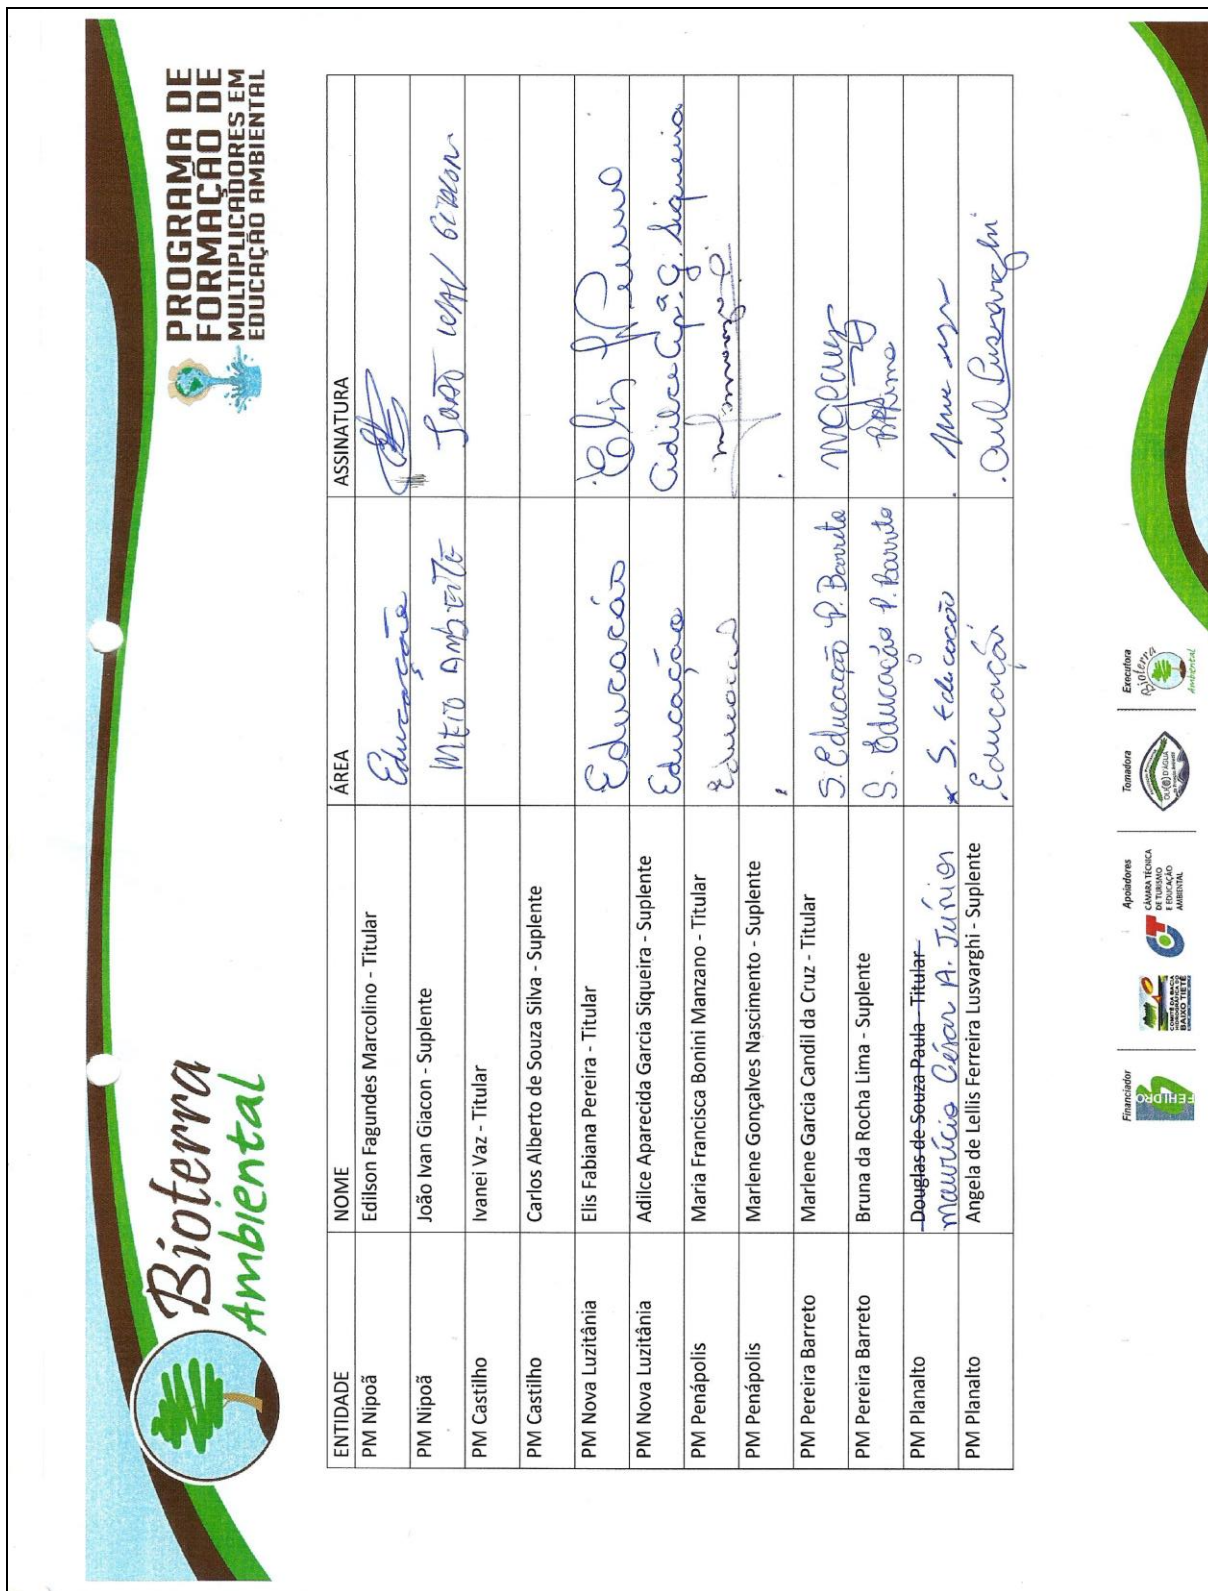 Bioterra
Ambiental
PROGRAMA DE
FORMAÇÃO DE
MULTIPLICADORES EM
EDUCAÇÃO AMBIENTAL
ENTIDADE NOME ÁREA ASSINATURA
PM Nipoã Edilson Fagundes Marcolino - Titular Educação
PM Nipoã João Ivan Giacon - Suplente MEIO AMBIENTE JOÃO IVAN GIACON
PM Castilho Ivanei Vaz - Titular
PM Castilho Carlos Alberto de Souza Silva - Suplente
PM Nova Luzitânia Elis Fabiana Pereira - Titular Educação Elis
PM Nova Luzitânia Adilce Aparecida Garcia Siqueira - Suplente Educação Adilce Apª. G. Siqueira
PM Penápolis Maria Francisca Bonini Manzano - Titular Educacao
PM Penápolis Marlene Gonçalves Nascimento - Suplente
PM Pereira Barreto Marlene Garcia Candil da Cruz - Titular S. Educação P. Barreto
PM Pereira Barreto Bruna da Rocha Lima - Suplente S. Educação P. Barreto
PM Planalto Douglas de Souza Paula - Titular S. Educação
Maurício César A. Júnior
PM Planalto Angela de Lellis Ferreira Lusvarghi - Suplente Educação Lusvarghi
Financiador
FEHIDRO
COMITÊ DA BACIA
HIDROGRÁFICA DO
BAIXO TIETÊ
Apoiadores
CÂMARA TÉCNICA
DE TURISMO
E EDUCAÇÃO
AMBIENTAL
Tomadora
Executora
Bioterra
Ambiental